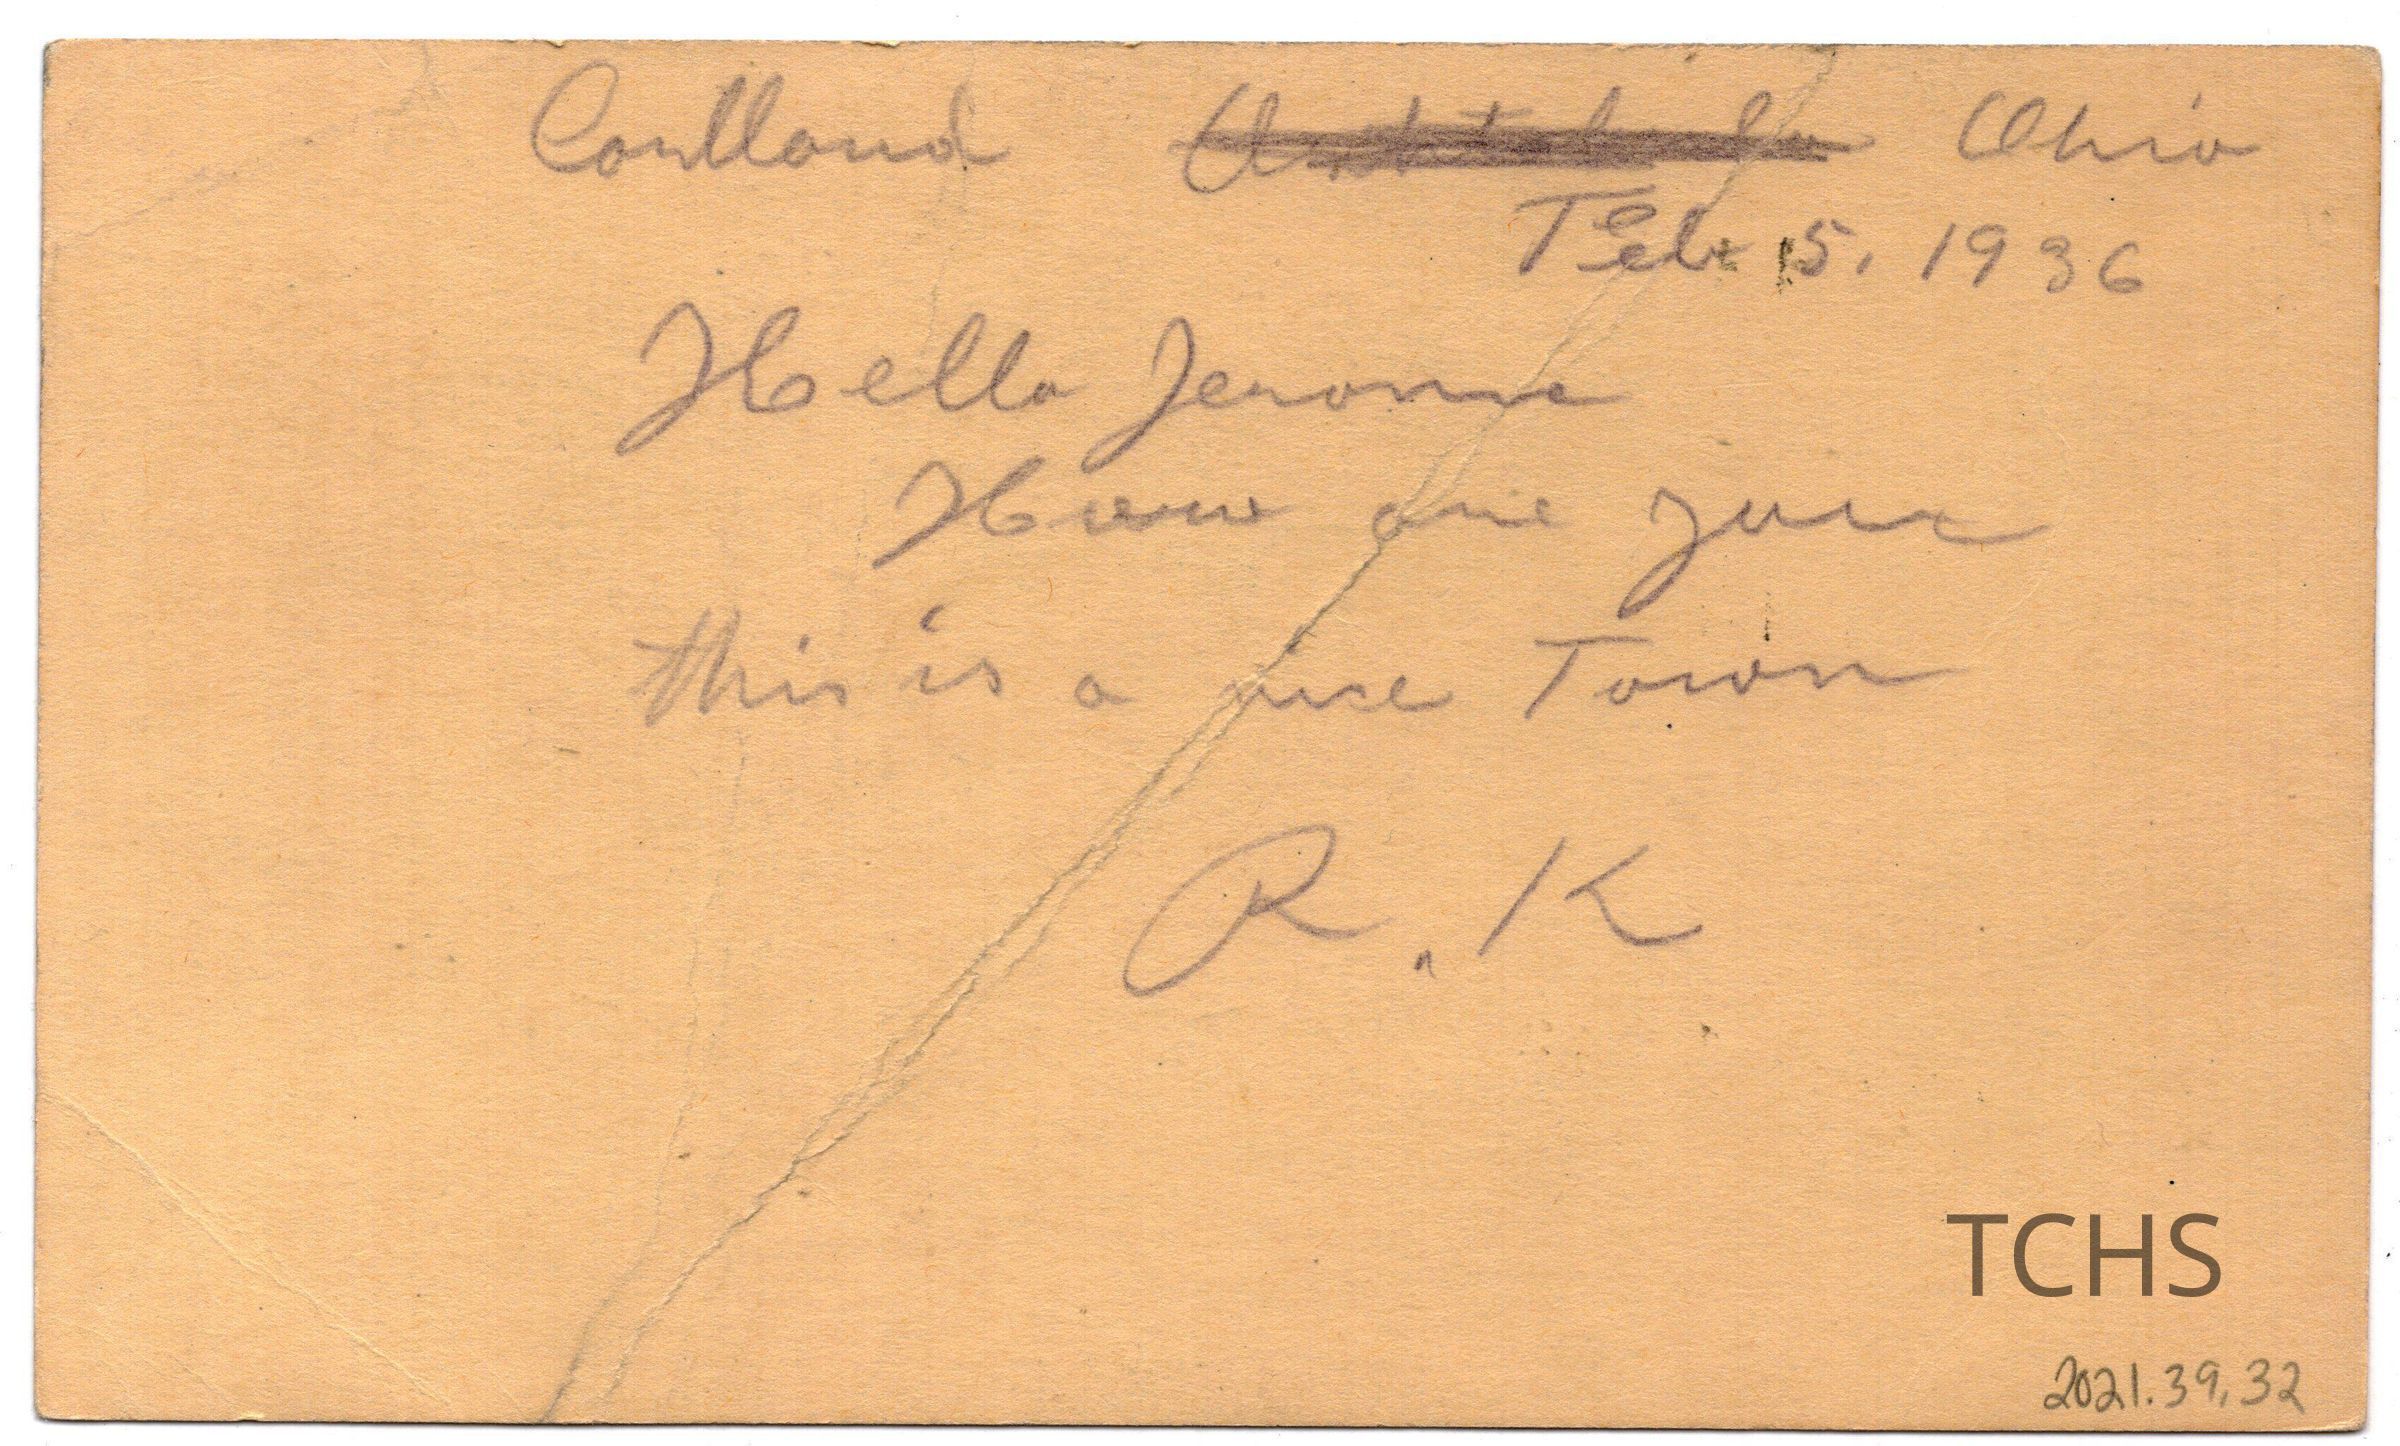 Cortland Ashtabula Ohio
Feb. 5, 1936
Hello Jerome
How are you
this is a nice Town
R. K
TCHS
2021.39.32